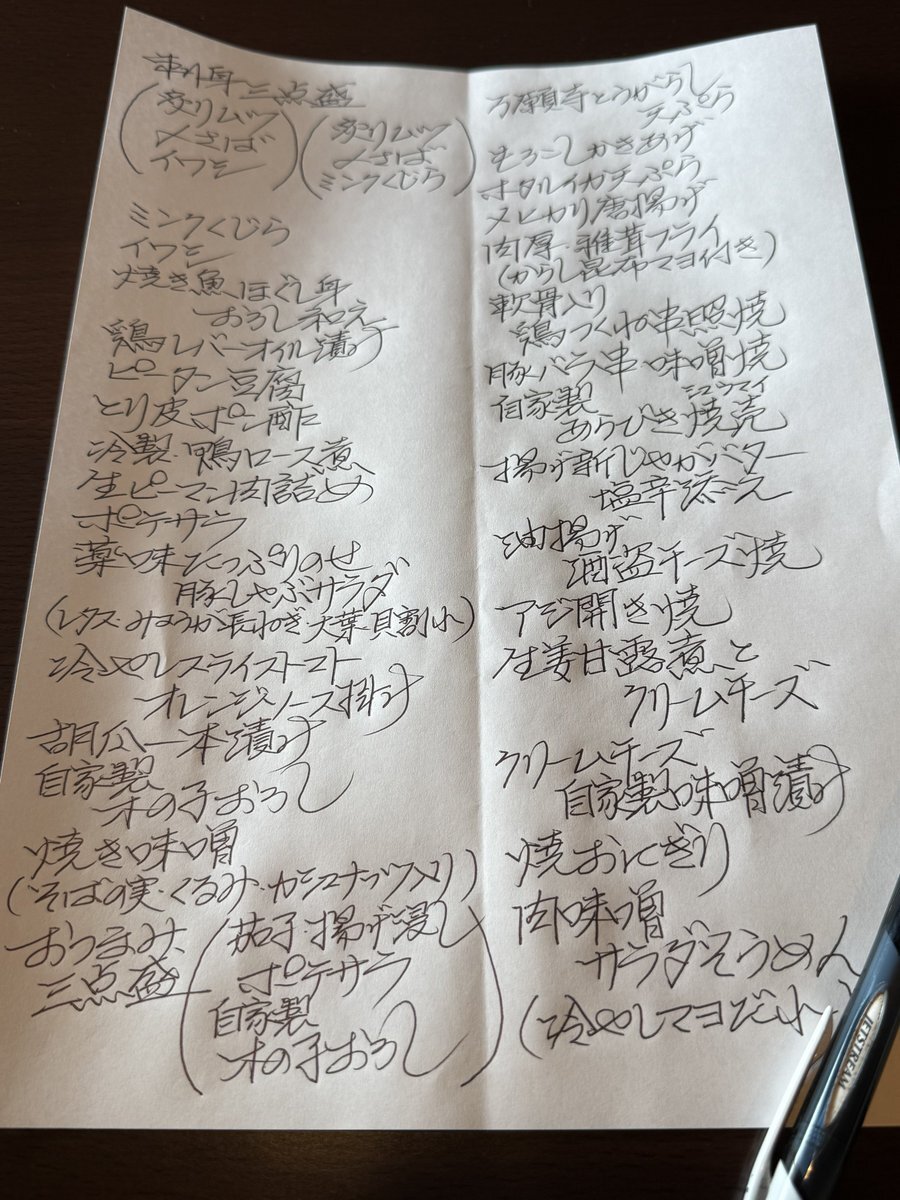 刺身三点盛
(炙りムツ
〆さば
イワシ)
(炙りムツ
〆さば
ミンクくじら)
ミンクくじら
イワシ
焼き魚ほぐし身
おろし和え
鶏レバーオイル漬け
ピータン豆腐
とり皮ポン酢
冷製・鴨ロース煮
生ピーマン肉詰め
ポテサラ
薬味たっぷりのせ
豚しゃぶサラダ
(レタス・みょうが・長ねぎ・大葉・貝割れ)
冷やしスライストマト
オレンジソース掛け
胡瓜一本漬け
自家製
木の子おろし
焼き味噌
(そばの実・くるみ・カシューナッツ入り)
おつまみ
三点盛
(茄子・揚げ浸し
ポテサラ
自家製
木の子おろし)
万願寺とうがらし
天ぷら
もろこしかきあげ
ホタルイカ天ぷら
メヒカリ唐揚げ
肉厚・椎茸フライ
(からし昆布マヨ付き)
軟骨入り
鶏つくねの串照焼
豚バラ串味噌焼
自家製
あらびき焼売
シュウマイ
揚げ新じゃがバター
塩辛添え
油揚げ
酒盗チーズ焼
アジ開き焼
生姜甘露煮と
クリームチーズ
クリームチーズ
自家製味噌漬け
焼おにぎり
肉味噌
サラダそうめん
(冷やしマヨだれ)
JETSTREAM